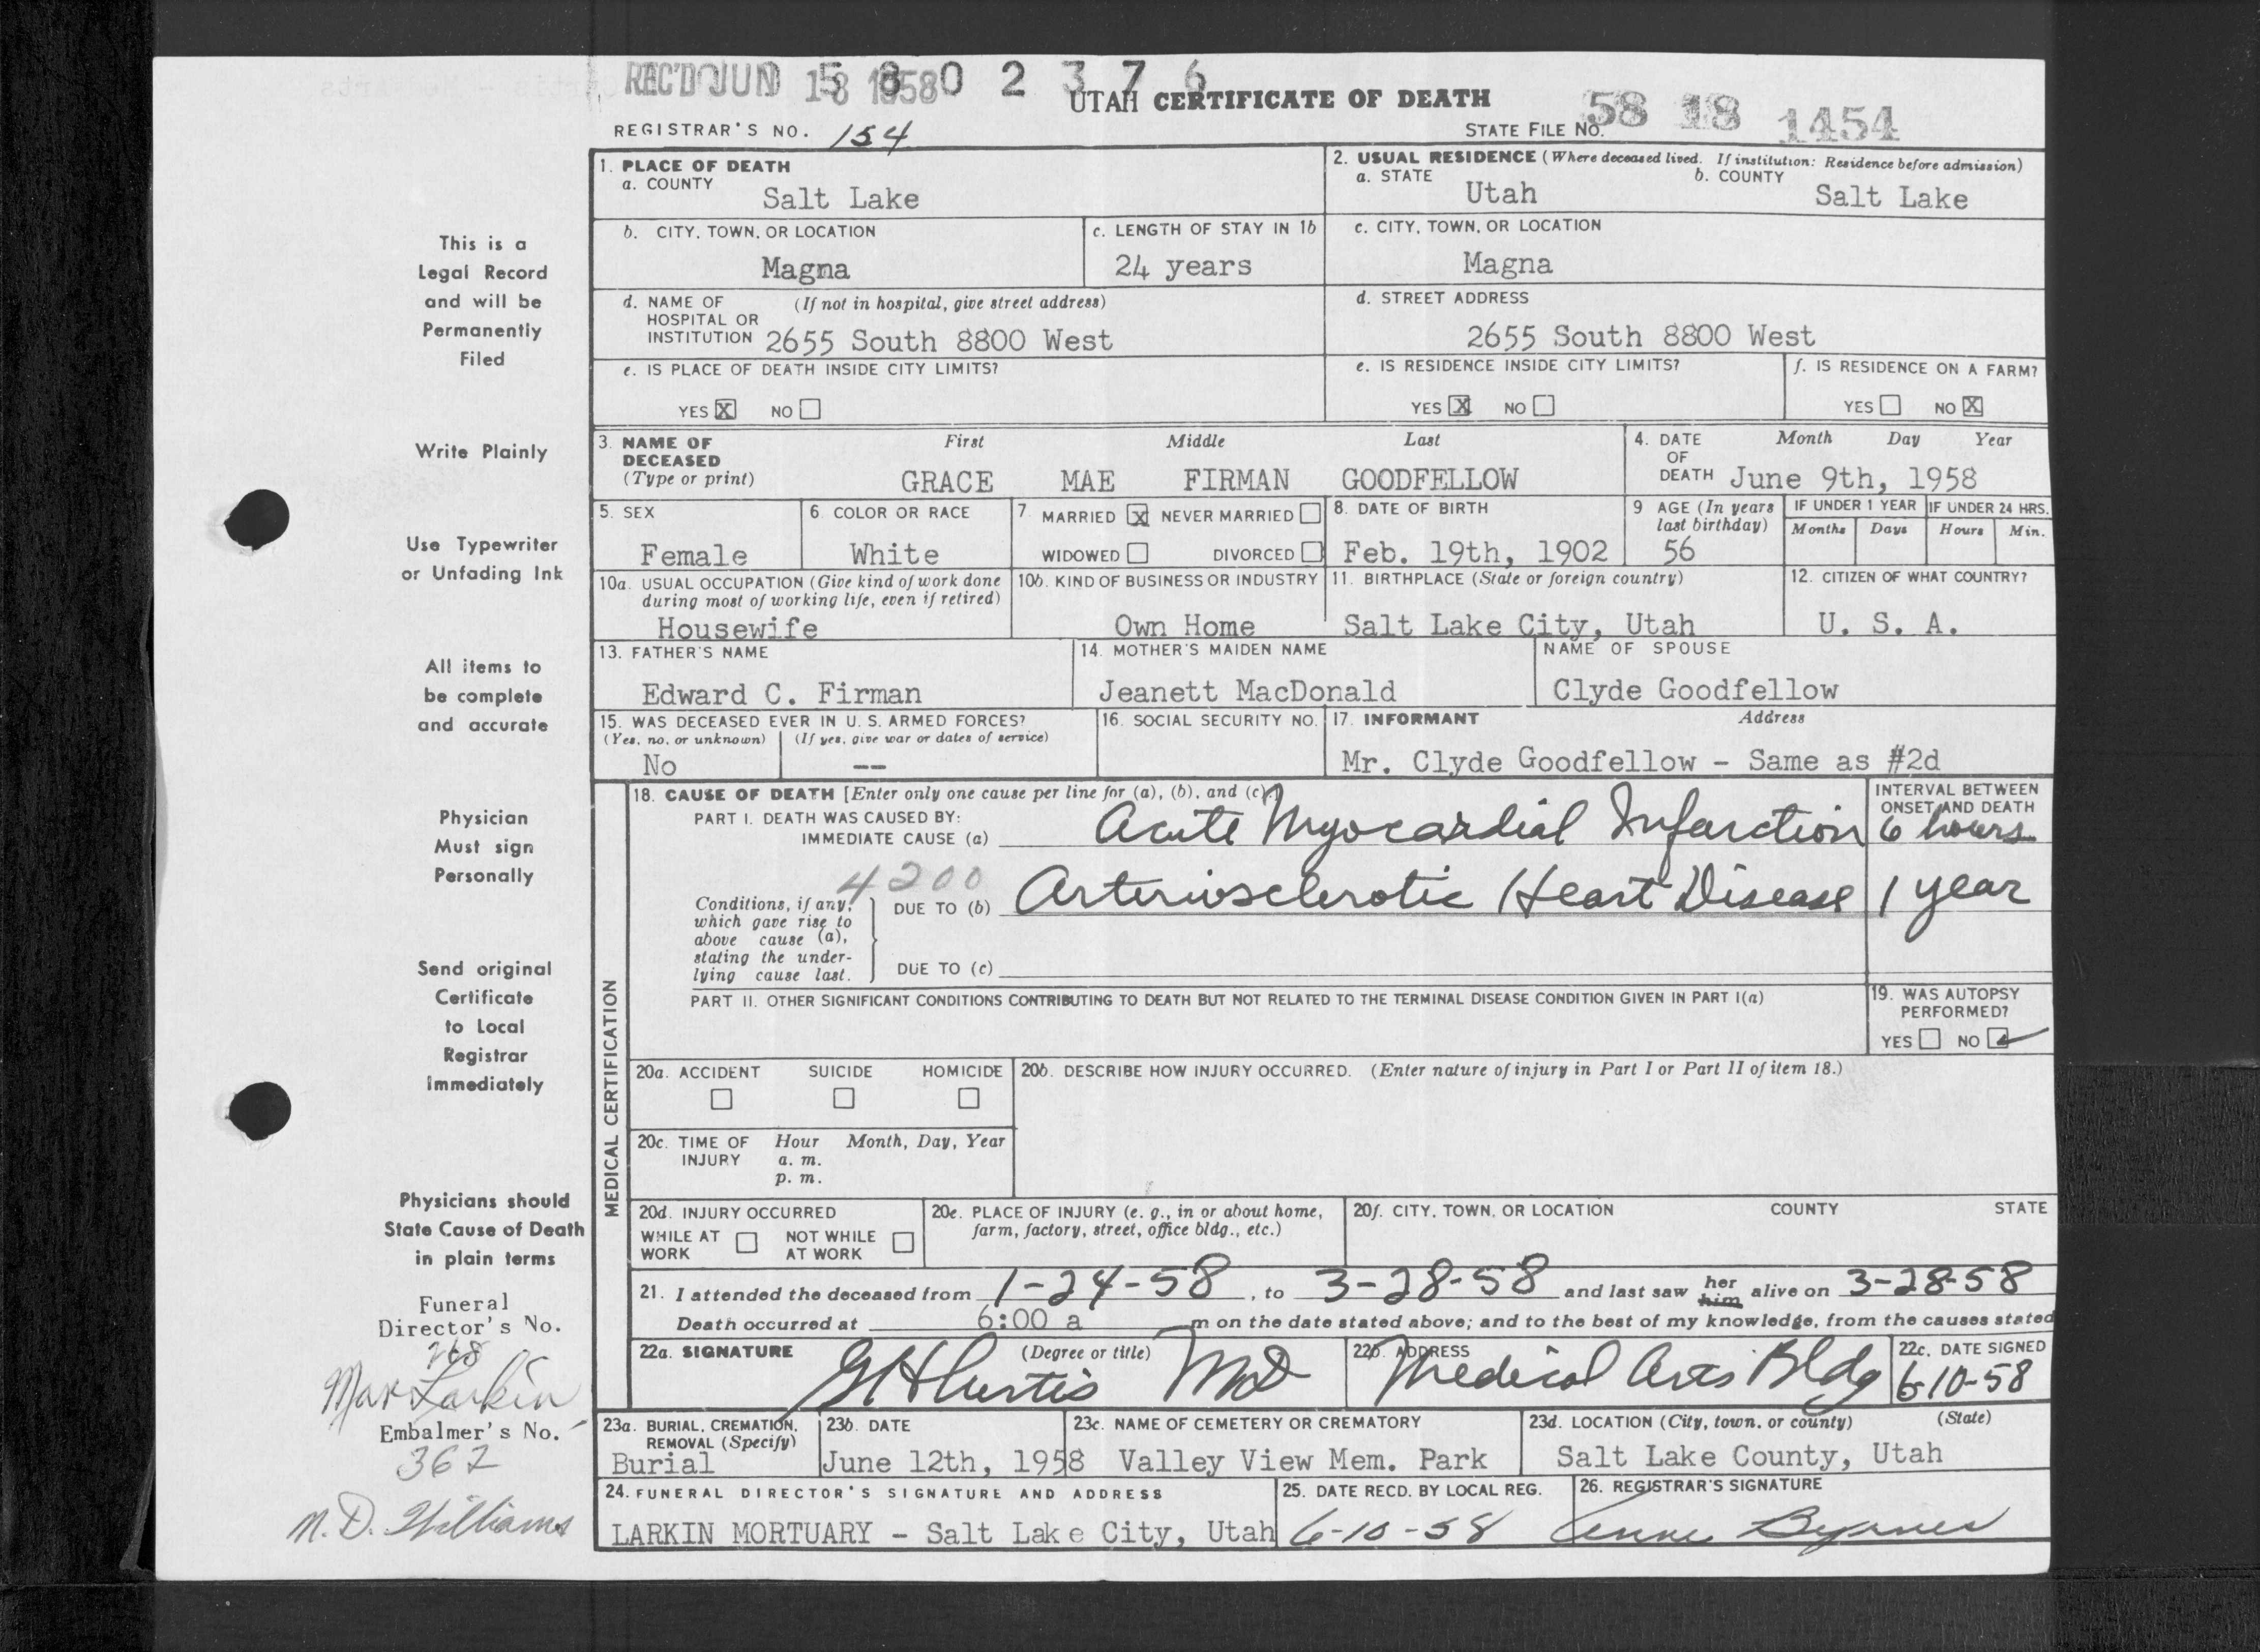 REC'D JUN 18 1958
5 8 0 2 3 7 6
UTAH CERTIFICATE OF DEATH
REGISTRAR'S NO. 154
STATE FILE NO. 58 18 1454
1. PLACE OF DEATH
a. COUNTY
Salt Lake
2. USUAL RESIDENCE (Where deceased lived. If institution: Residence before admission)
a. STATE
Utah
b. COUNTY
Salt Lake
b. CITY, TOWN, OR LOCATION
Magna
c. LENGTH OF STAY IN 1b
24 years
c. CITY, TOWN, OR LOCATION
Magna
d. NAME OF (If not in hospital, give street address)
HOSPITAL OR
INSTITUTION 2655 South 8800 West
d. STREET ADDRESS
2655 South 8800 West
e. IS PLACE OF DEATH INSIDE CITY LIMITS?
YES X NO
e. IS RESIDENCE INSIDE CITY LIMITS?
YES X NO
f. IS RESIDENCE ON A FARM?
YES NO X
3. NAME OF DECEASED
(Type or print)
First Middle Last
GRACE MAE FIRMAN GOODFELLOW
4. DATE OF DEATH
Month Day Year
June 9th, 1958
5. SEX
Female
6. COLOR OR RACE
White
7. MARRIED X NEVER MARRIED
WIDOWED DIVORCED
8. DATE OF BIRTH
Feb. 19th, 1902
9 AGE (In years last birthday)
56
IF UNDER 1 YEAR
Months Days
IF UNDER 24 HRS.
Hours Min.
10a. USUAL OCCUPATION (Give kind of work done
during most of working life, even if retired)
Housewife
10b. KIND OF BUSINESS OR INDUSTRY
Own Home
11. BIRTHPLACE (State or foreign country)
Salt Lake City, Utah
12. CITIZEN OF WHAT COUNTRY?
U. S. A.
13. FATHER'S NAME
Edward C. Firman
14. MOTHER'S MAIDEN NAME
Jeanett MacDonald
NAME OF SPOUSE
Clyde Goodfellow
15. WAS DECEASED EVER IN U. S. ARMED FORCES?
(Yes, no, or unknown) (If yes, give war or dates of service)
No --
16. SOCIAL SECURITY NO.
17. INFORMANT Address
Mr. Clyde Goodfellow - Same as #2d
MEDICAL CERTIFICATION
18. CAUSE OF DEATH [Enter only one cause per line for (a), (b), and (c).]
INTERVAL BETWEEN
ONSET AND DEATH
PART I. DEATH WAS CAUSED BY:
IMMEDIATE CAUSE (a) Acute Myocardial Infarction 6 hours
4200
Conditions, if any,
which gave rise to
above cause (a),
stating the under-
lying cause last.
DUE TO (b) Arteriosclerotic Heart Disease 1 year
DUE TO (c)
PART II. OTHER SIGNIFICANT CONDITIONS CONTRIBUTING TO DEATH BUT NOT RELATED TO THE TERMINAL DISEASE CONDITION GIVEN IN PART I(a)
19. WAS AUTOPSY
PERFORMED?
YES NO ✓
20a. ACCIDENT SUICIDE HOMICIDE
20b. DESCRIBE HOW INJURY OCCURRED. (Enter nature of injury in Part I or Part II of item 18.)
20c. TIME OF INJURY
Hour Month, Day, Year
a. m.
p. m.
20d. INJURY OCCURRED
WHILE AT WORK NOT WHILE AT WORK
20e. PLACE OF INJURY (e. g., in or about home,
farm, factory, street, office bldg., etc.)
20f. CITY, TOWN, OR LOCATION COUNTY STATE
21. I attended the deceased from 1-24-58, to 3-28-58 and last saw her him alive on 3-28-58
Death occurred at 6:00 a m on the date stated above; and to the best of my knowledge, from the causes stated
22a. SIGNATURE (Degree or title)
G H Curtis MD
22b. ADDRESS
Medical Arts Bldg
22c. DATE SIGNED
6-10-58
23a. BURIAL, CREMATION,
REMOVAL (Specify)
Burial
23b. DATE
June 12th, 1958
23c. NAME OF CEMETERY OR CREMATORY
Valley View Mem. Park
23d. LOCATION (City, town, or county) (State)
Salt Lake County, Utah
24. FUNERAL DIRECTOR'S SIGNATURE AND ADDRESS
LARKIN MORTUARY - Salt Lake City, Utah
25. DATE RECD. BY LOCAL REG.
6-10-58
26. REGISTRAR'S SIGNATURE
This is a
Legal Record
and will be
Permanently
Filed
Write Plainly
Use Typewriter
or Unfading Ink
All items to
be complete
and accurate
Physician
Must sign
Personally
Send original
Certificate
to Local
Registrar
immediately
Physicians should
State Cause of Death
in plain terms
Funeral
Director's No.
268
Max Larkin
Embalmer's No.
367
N. D. Williams